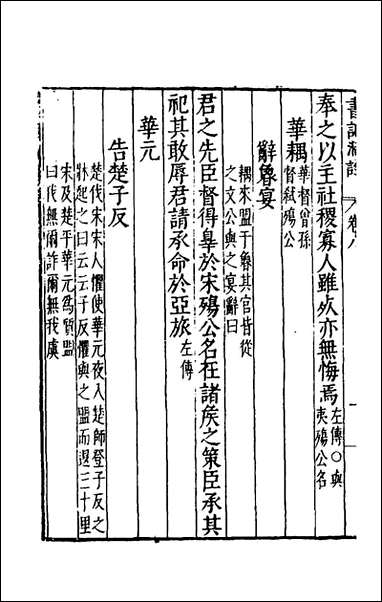 書記洞詮 卷八
奉之以主社稷寡人雖死亦無悔焉左傳○與
夷殤公名
華耦華督曾孫
督弑殤公
辭魯宴
耦來盟于魯其官皆從
之文公與之宴辭曰
君之先臣督得辠於宋殤公名在諸侯之策臣承其
祀其敢辱君請承命於亞旅左傳
華元
告楚子反
楚伐宋宋人懼使華元夜入楚師登子反之
牀起之曰云云子反懼與之盟而退三十里
宋及楚平華元爲質盟
曰我無爾詐爾無我虞